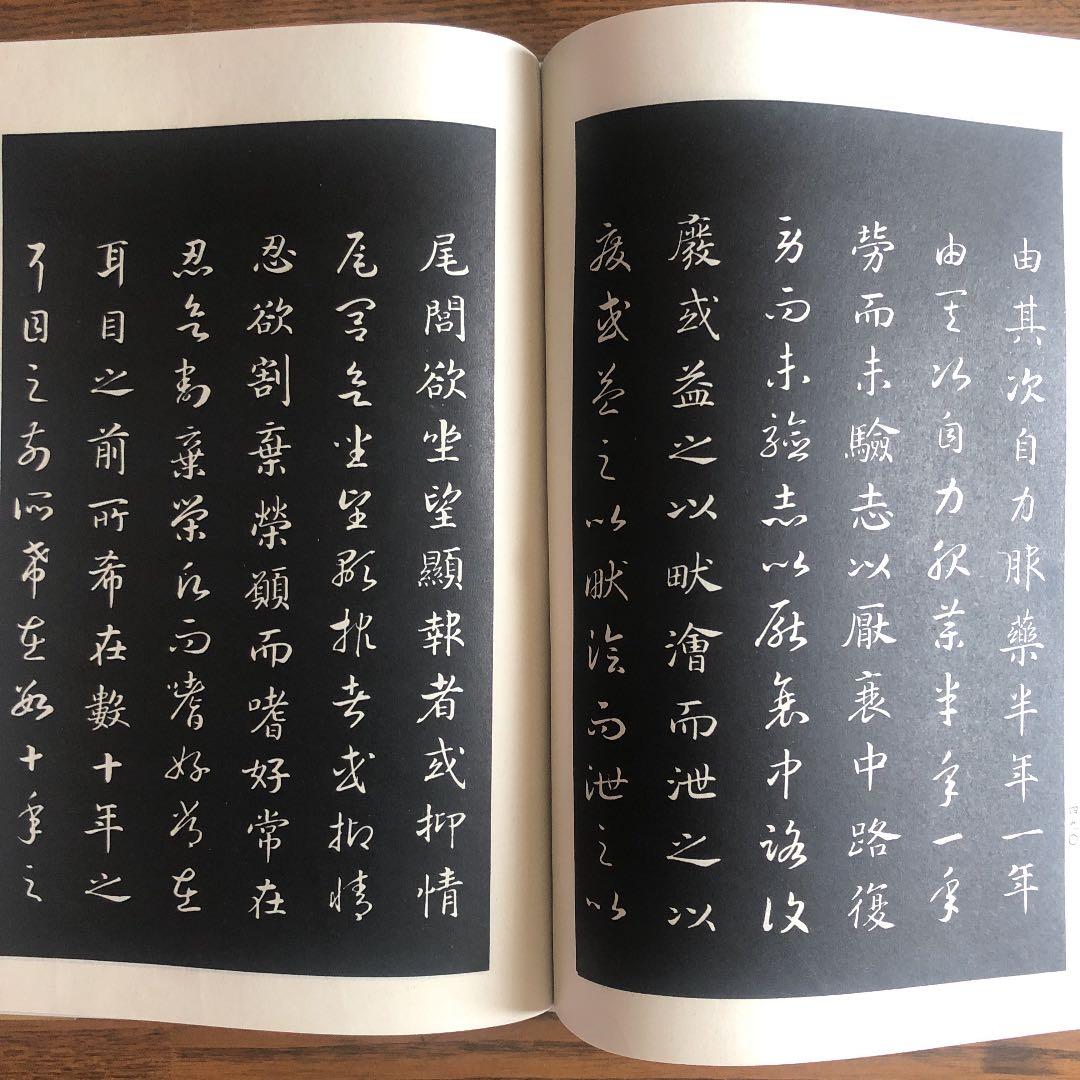 由其次自力服藥半年一年
由其次自力服藥半年一年
勞而未驗志以厭衰中路復
勞而未驗志以厭衰中路復
廢或益之以畎澮而泄之以
廢或益之以畎澮而泄之以
尾閭欲坐望顯報者或抑情
尾閭欲坐望顯報者或抑情
忍欲割棄榮願而嗜好常在
忍欲割棄榮願而嗜好常在
耳目之前所希在數十年之
耳目之前所希在數十年之
四七〇